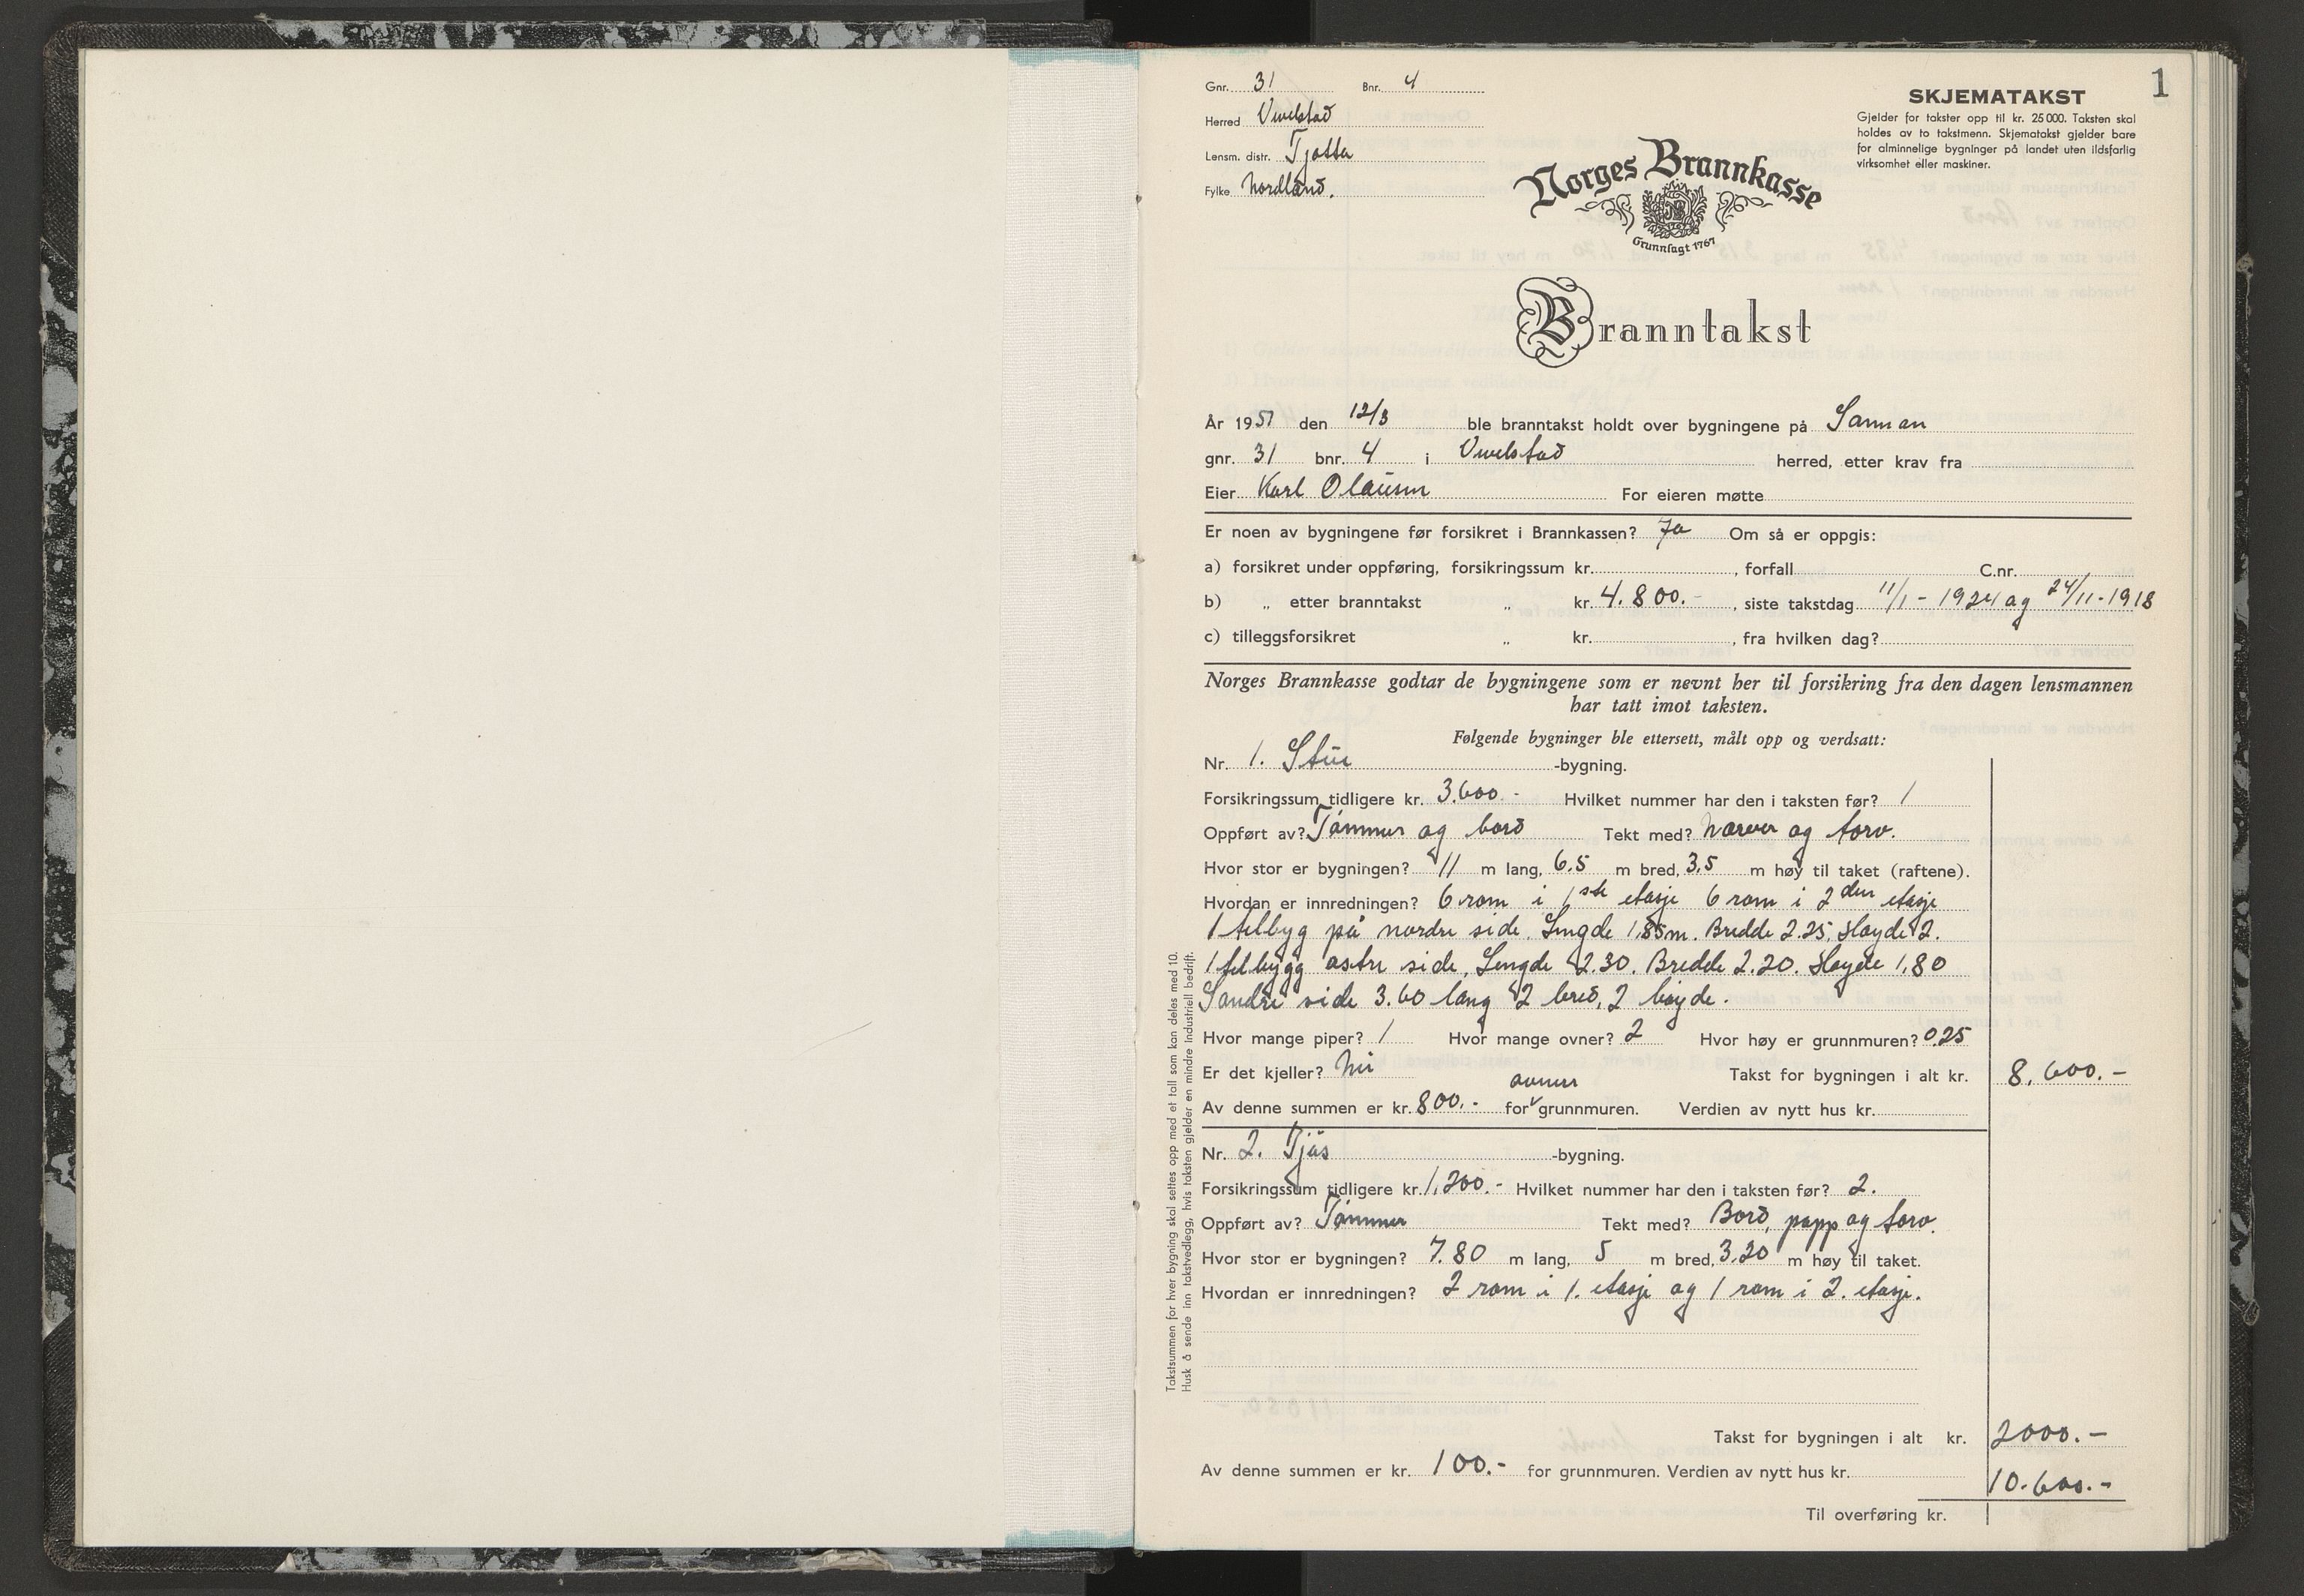 1
Gnr. 31 Bnr. 4
Herred Vevelstad
Lensm. distr. Tjøtta
Fylke Nordland.
SKJEMATAKST
Gjelder for takster opp til kr. 25 000. Taksten skal
holdes av to takstmenn. Skjematakst gjelder bare
for alminnelige bygninger på landet uten ildsfarlig
virksomhet eller maskiner.
Norges Brannkasse
Grunnlagt 1767
Branntakst
År 1951 den 12/3 ble branntakst holdt over bygningene på
gnr. 31 bnr. 4 i Vevelstad herred, etter krav fra
Eier Karl Olausen For eieren møtte
Er noen av bygningene før forsikret i Brannkassen? Ja Om så er oppgis:
a) forsikret under oppføring, forsikringssum kr. , forfall C.nr.
b) „ etter branntakst „ kr. 4.800.- , siste takstdag 11/1 - 1924 og 24/11-1918
c) tilleggsforsikret „ kr. , fra hvilken dag?
Norges Brannkasse godtar de bygningene som er nevnt her til forsikring fra den dagen lensmannen
har tatt imot taksten.
Følgende bygninger ble ettersett, målt opp og verdsatt:
Nr. 1. Stue -bygning.
Forsikringssum tidligere kr. 3.600.- Hvilket nummer har den i taksten før? 1
Oppført av? Tømmer og bord Tekt med? Næver og torv.
Hvor stor er bygningen? 11 m lang, 6,5 m bred, 3,5 m høy til taket (raftene).
Hvordan er innredningen? 6 rom i 1ste etasje 6 rom i 2den etasje
1 tilbyg på nordre side. Lengde 1,85m. Bredde 2.25. Høyde 2.
1 tilbygg østre side, Lengde 2.30. Bredde 2.20. Høyde 1,80
Søndre side 3.60 lang 2 bred, 2 høyde.
Hvor mange piper? 1 Hvor mange ovner? 2 Hvor høy er grunnmuren? 0.25
Er det kjeller? Nei Takst for bygningen i alt kr. 8.600.-
ovner
Av denne summen er kr. 800.- for grunnmuren. Verdien av nytt hus kr.
Nr. 2. Fjøs -bygning.
Forsikringssum tidligere kr. 1.200.- Hvilket nummer har den i taksten før? 2.
Oppført av? Tømmer Tekt med? Bord, papp og torv.
Hvor stor er bygningen? 7.80 m lang, 5 m bred, 3.20 m høy til taket.
Hvordan er innredningen? 2 rom i 1. etasje og 1 rom i 2. etasje.
Takst for bygningen i alt kr. 2000.-
Av denne summen er kr. 100.- for grunnmuren. Verdien av nytt hus kr.
10.600.-
Til overføring kr.
Takstsummen for hver bygning skal settes opp med et tall som kan deles med 10.
Husk å sende inn takstvedlegg, hvis taksten gjelder en mindre industriell bedrift.